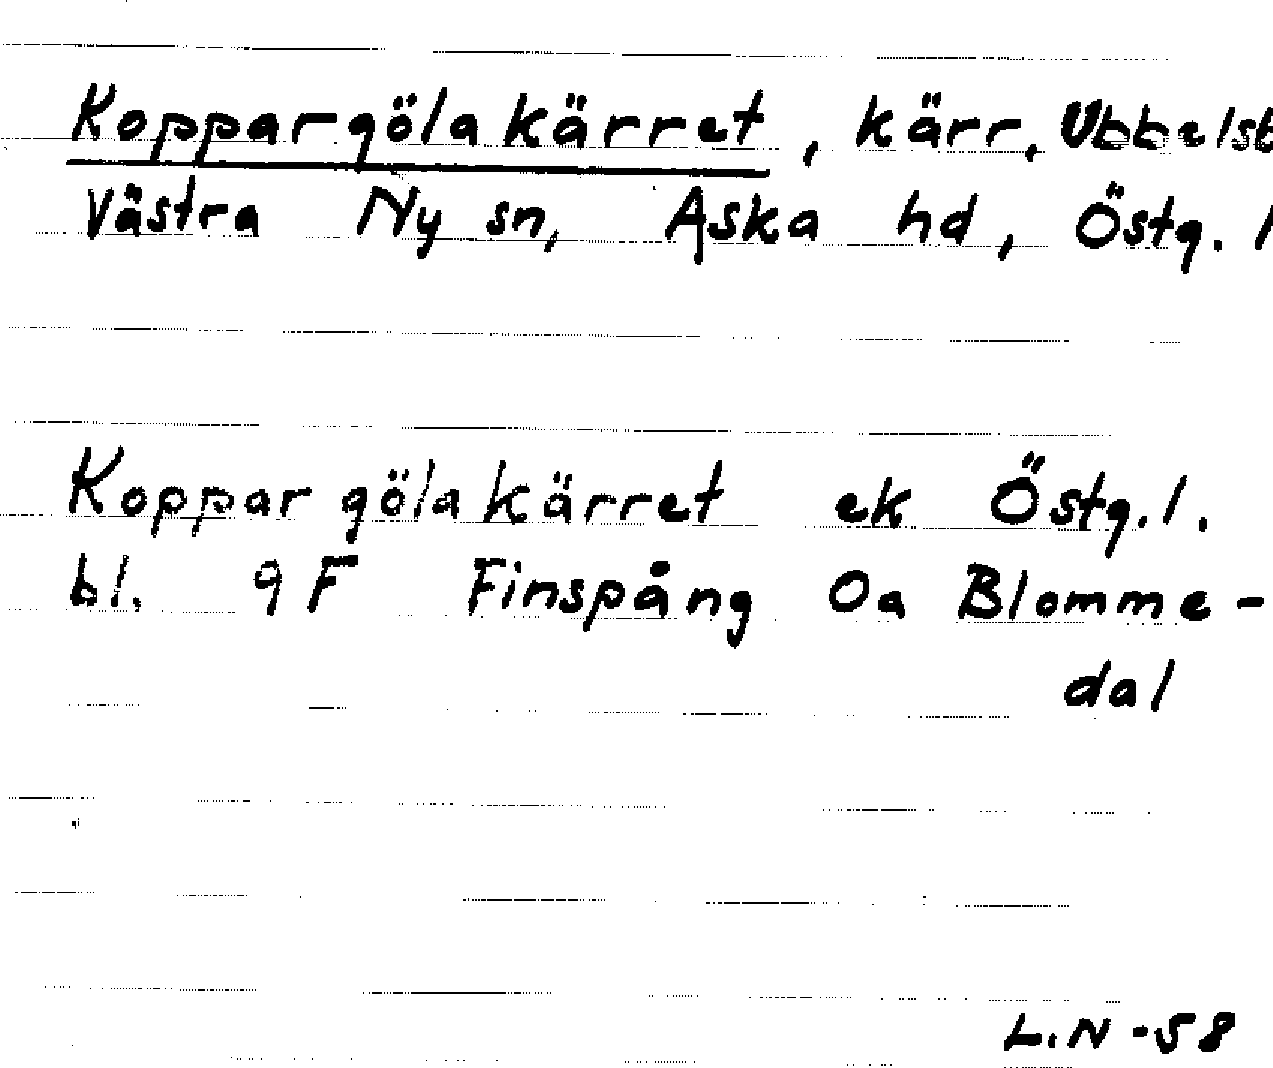 Koppargölakärret, kärr, Ubbelst
Västra Ny sn, Aska hd, Östg. l
Koppargölakärret ek Östg.l.
bl. 9F Finspång Oa Blomme-
dal
L.N -58